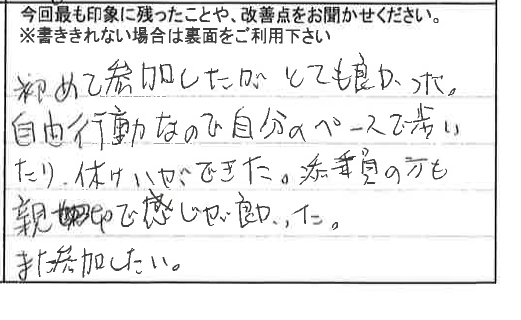 今回最も印象に残ったことや、改善点をお聞かせください。
※書ききれない場合は裏面をご利用下さい
初めて参加したが とても良かった。
自由行動なので自分のペースで歩い
たり、休けいができた。添乗員の方も
親切で感じが良かった。
また参加したい。